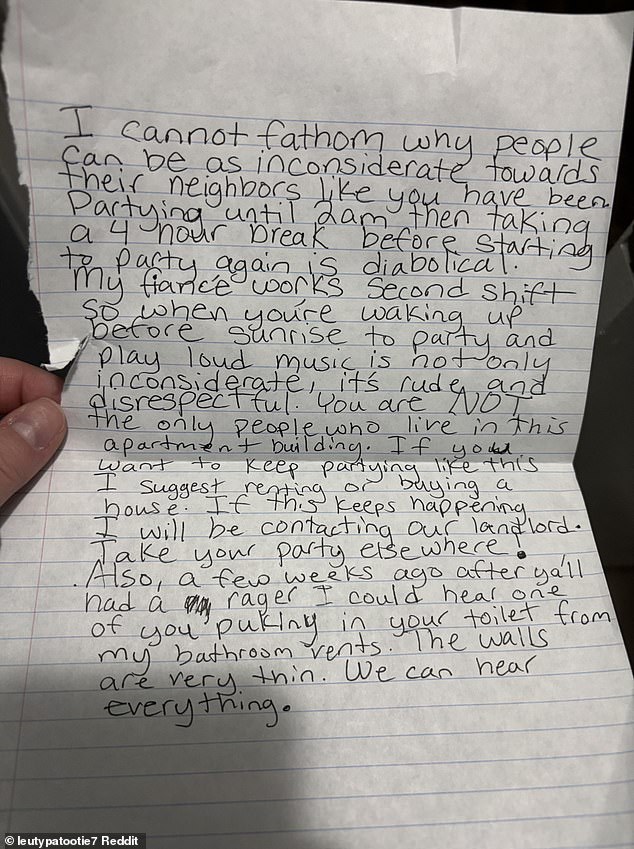 I cannot fathom why people
can be as inconsiderate towards
their neighbors like you have been.
Partying until 2am then taking
a 4 hour break before starting
to party again is diabolical.
My fiance works second shift
so when you're waking up
before sunrise to party and
play loud music is not only
inconsiderate, it's rude and
disrespectful. You are NOT
the only people who live in this
apartment building. If you
want to keep partying like this
I suggest renting or buying a
house. If this keeps happening
I will be contacting our landlord.
Take your party elsewhere!
Also, a few weeks ago after ya'll
had a rager I could hear one
of you puking in your toilet from
my bathroom vents. The walls
are very thin. We can hear
everything.
© leutypatootie7 Reddit